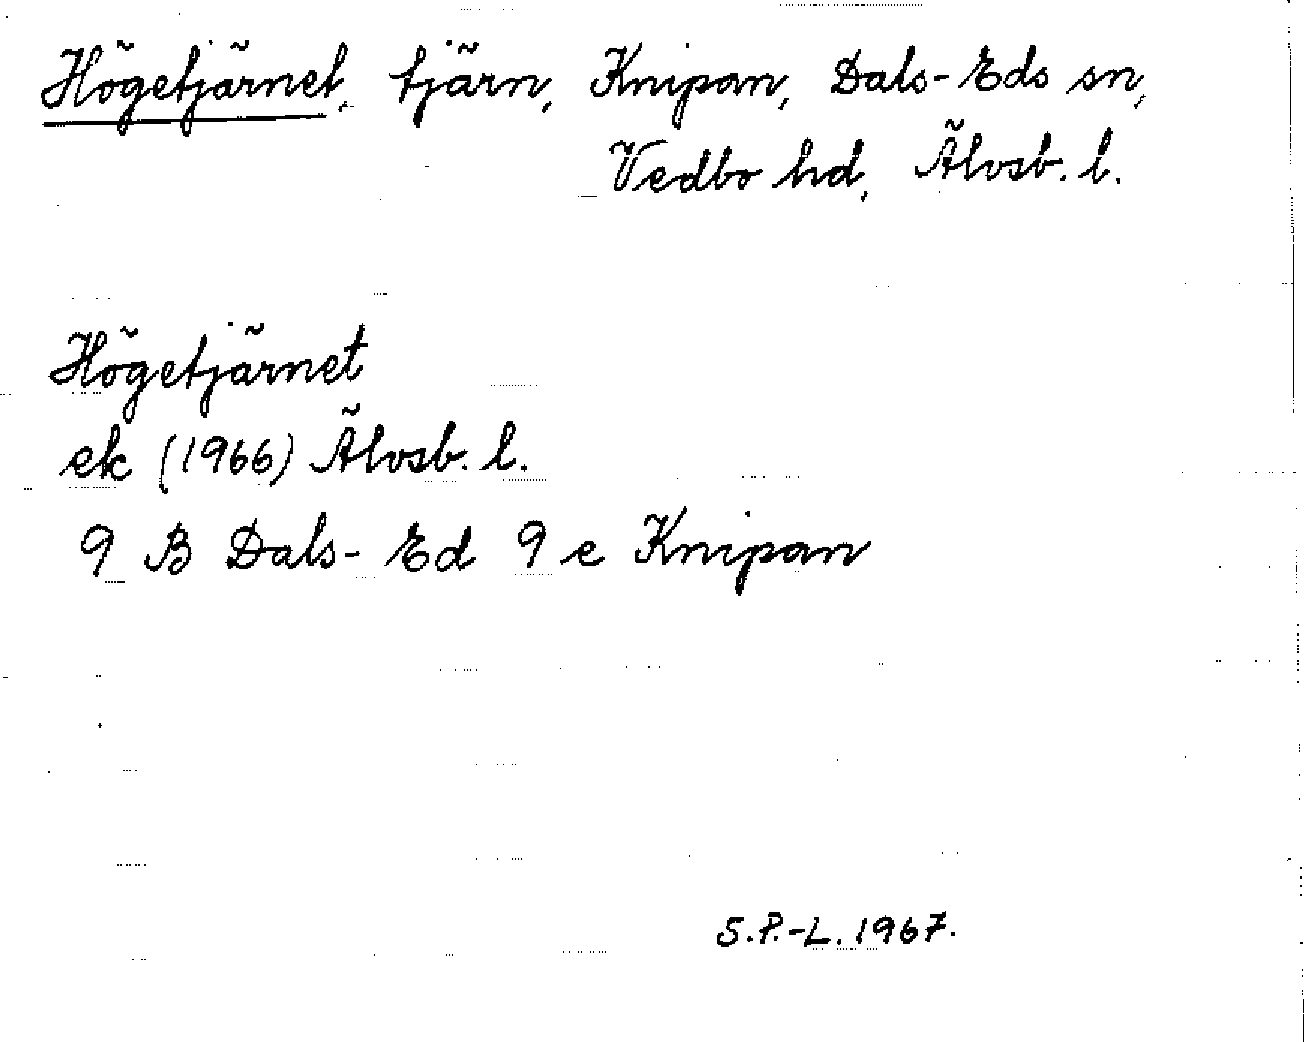 Högetjärnet, tjärn, Knipan, Dals-Eds sn,
Vedbo hd, Älvsb. l.
Högetjärnet
ek (1966) Älvsb. l.
9 B Dals-Ed 9 e Knipan
S.P.-L. 1967.